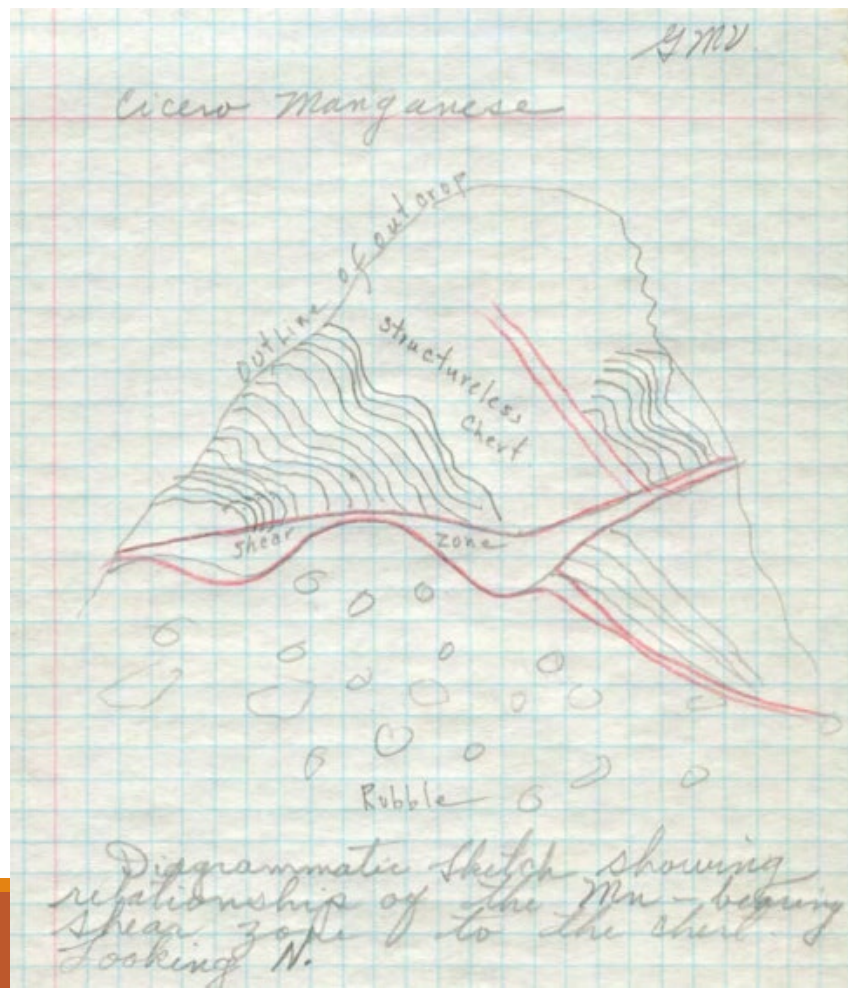 GMV
Cicero Manganese
Outline of outcrop
structureless
chert
shear zone
Rubble
Diagrammatic Sketch showing
relationship of the Mn-bearing
shear zone to the chert.
Looking N.